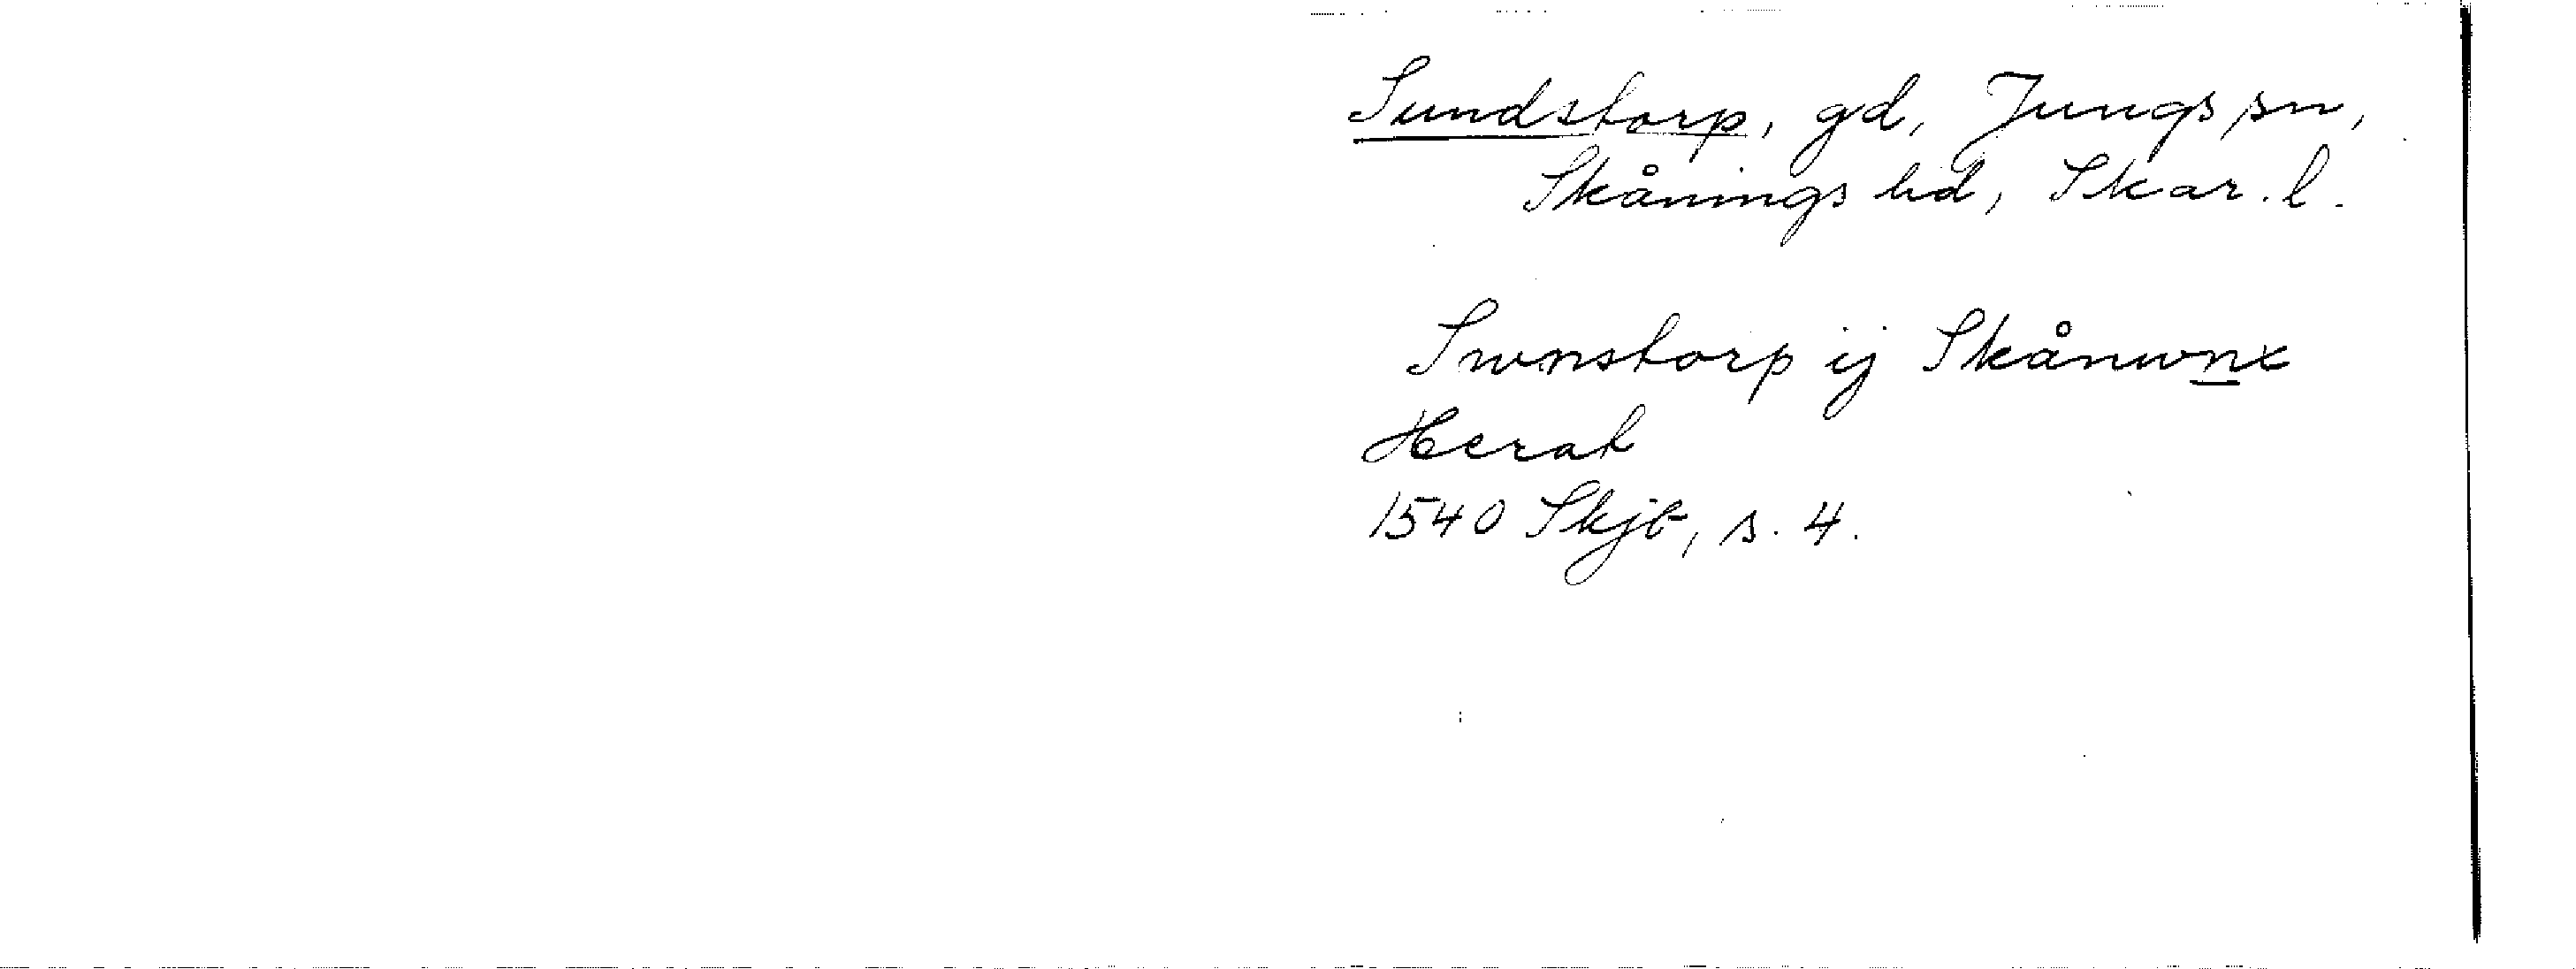 Sundstorp, gd, Jungs sn,
Skånings hd, Skar. l.
Swnstorp ij Skånwnx
Herat
1540 Skjb, s. 4.